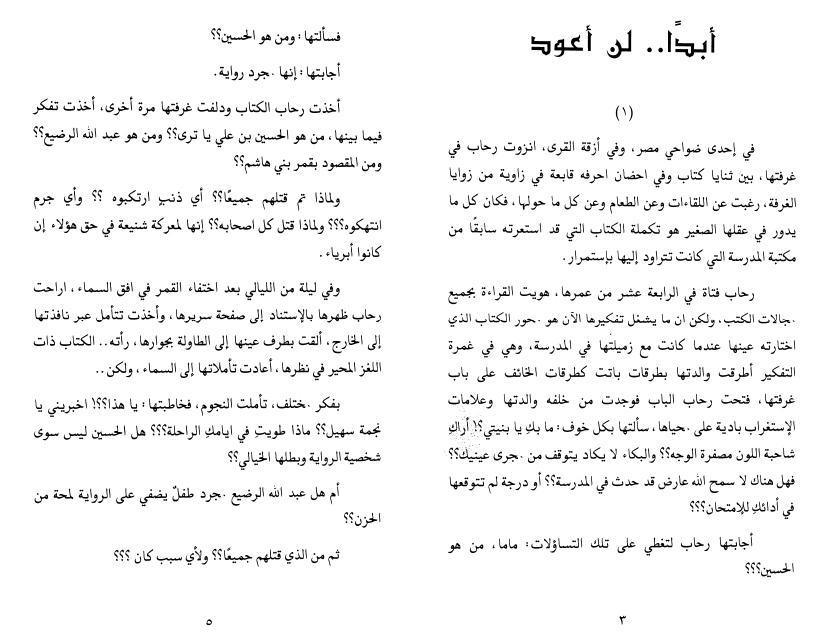 أبدًا.. لن أعود
(١)
في إحدى ضواحي مصر، وفي أزقة القرى، انزوت رحاب في
غرفتها، بين ثنايا كتاب وفي احضان احرفه قابعة في زاوية من زوايا
الغرفة، رغبت عن اللقاءات وعن الطعام وعن كل ما حولها، فكان كل ما
يدور في عقلها الصغير هو تكملة الكتاب التي قد استعرته سابقًا من
مكتبة المدرسة التي كانت تتراود إليها بإستمرار.
رحاب فتاة في الرابعة عشر من عمرها، هويت القراءة بجميع
.جالات الكتب، ولكن ان ما يشغل تفكيرها الآن هو .حور الكتاب الذي
اختارته عينها عندما كانت مع زميلتها في المدرسة، وهي في غمرة
التفكير أطرقت والدتها بطرقات باتت كطرقات الخائف على باب
غرفتها، فتحت رحاب الباب فوجدت من خلفه والدتها وعلامات
الإستغراب بادية على .حياها، سألتها بكل خوف: ما بكِ يا بنيتي؟! أراكِ
شاحبة اللون مصفرة الوجه؟؟ والبكاء لا يكاد يتوقف من .جرى عينيك؟؟
فهل هناك لا سمح الله عارض قد حدث في المدرسة؟؟ أو درجة لم تتوقعها
في أدائكِ للإمتحان؟؟؟
أجابتها رحاب لتغطي على تلك التساؤلات: ماما، من هو
الحسين؟؟؟
٣
فسألتها: ومن هو الحسين؟؟
أجابتها: إنها .جرد رواية.
أخذت رحاب الكتاب ودلفت غرفتها مرة أخرى، أخذت تفكر
فيما بينها، من هو الحسين بن علي يا ترى؟؟ ومن هو عبد الله الرضيع؟؟
ومن المقصود بقمر بني هاشم؟؟
ولماذا تم قتلهم جميعًا؟؟ أي ذنبٍ ارتكبوه ؟؟ وأي جرم
انتهكوه؟؟؟ ولماذا قتل كل اصحابه؟؟ إنها لمعركة شنيعة في حق هؤلاء إن
كانوا أبرياء.
وفي ليلة من الليالي بعد اختفاء القمر في افق السماء، اراحت
رحاب ظهرها بالإستناد إلى صفحة سريرها، وأخذت تتأمل عبر نافذتها
إلى الخارج، ألقت بطرف عينها إلى الطاولة بجوارها، رأته.. الكتاب ذات
اللغز المحير في نظرها، أعادت تأملاتها إلى السماء، ولكن..
بفكر .ختلف، تأملت النجوم، فخاطبتها: يا هذا؟؟! اخبريني يا
نجمة سهيل؟؟ ماذا طويتِ في ايامكِ الراحلة؟؟؟ هل الحسين ليس سوى
شخصية الرواية وبطلها الخيالي؟؟
أم هل عبد الله الرضيع .جرد طفلٌ يضفي على الرواية لمحة من
الحزن؟؟
ثم من الذي قتلهم جميعًا؟؟ ولأي سبب كان ؟؟؟
٥